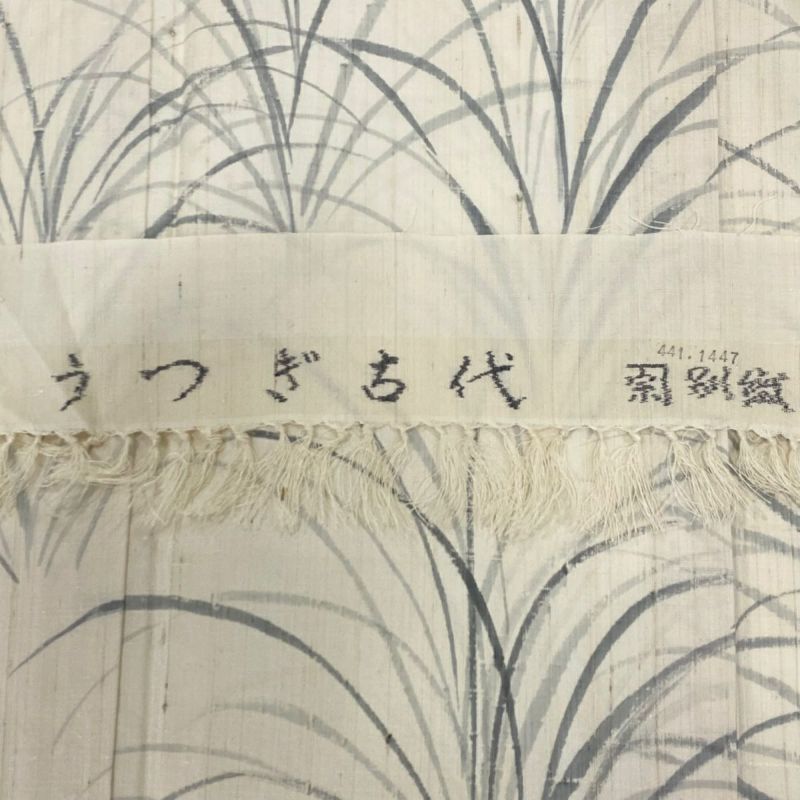 441.1447
うつぎち代 別織